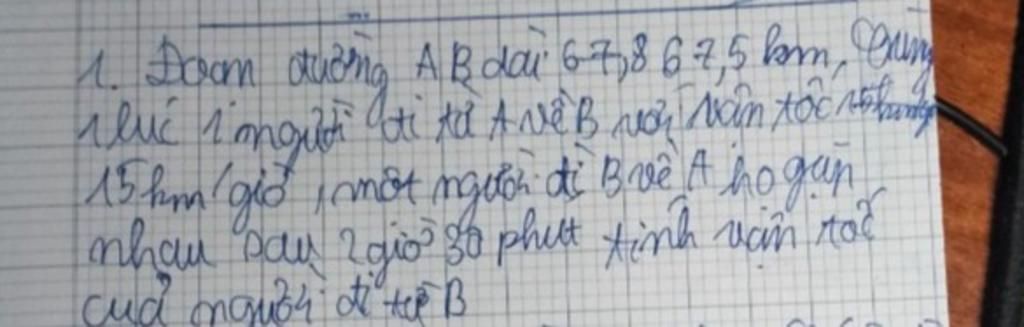 1. Đoạn đường AB dài 67,8 67,5 km, Cùng
lúc 1 người đi từ A về B với vận tốc
15 km/giờ, một người đi B về A họ gặp
nhau sau 2 giờ 30 phút tính vận tốc
của người đi từ B